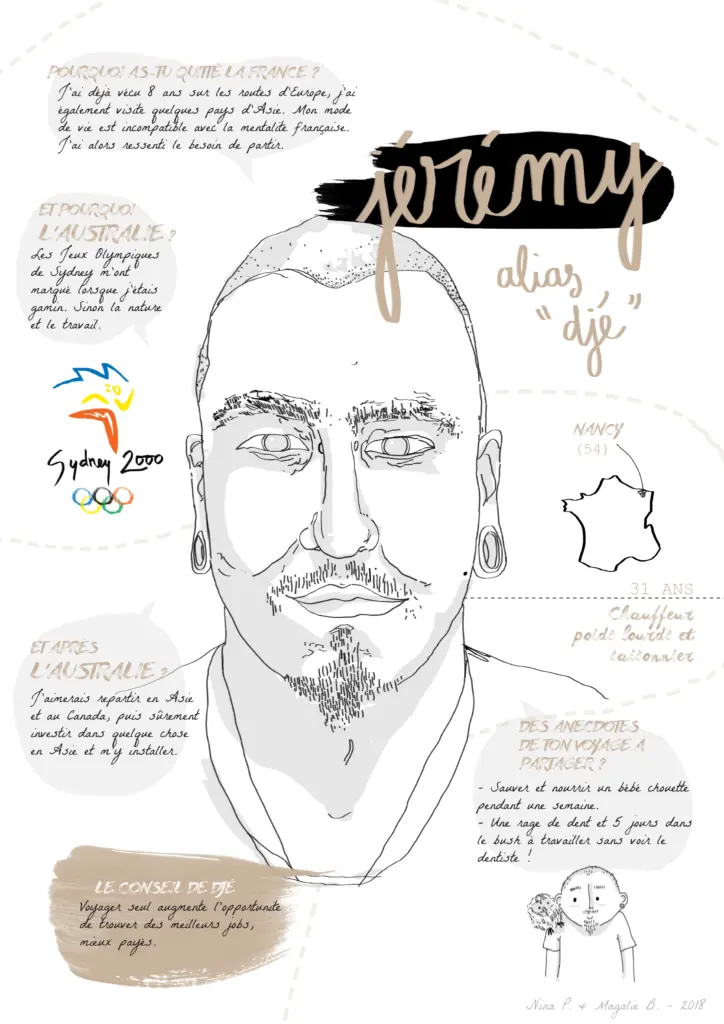 POURQUOI AS-TU QUITTÉ LA FRANCE ?
J'ai déjà vécu 8 ans sur les routes d'Europe, j'ai
également visité quelques pays d'Asie. Mon mode
de vie est incompatible avec la mentalité française.
J'ai alors ressenti le besoin de partir.
jérémy
alias
"djé"
ET POURQUOI
L'AUSTRALIE ?
Les Jeux Olympiques
de Sydney m'ont
marqué lorsque j'étais
gamin. Sinon la nature
et le travail.
Sydney 2000
NANCY
(54)
31 ANS
Chauffeur
poids lourds et
saisonnier
ET APRÈS
L'AUSTRALIE ?
J'aimerais repartir en Asie
et au Canada, puis sûrement
investir dans quelque chose
en Asie et m'y installer.
DES ANECDOTES
DE TON VOYAGE A
PARTAGER ?
- Sauver et nourrir un bébé chouette
pendant une semaine.
- Une rage de dent et 5 jours dans
le bush à travailler sans voir le
dentiste !
LE CONSEIL DE DJÉ
Voyager seul augmente l'opportunité
de trouver des meilleurs jobs,
mieux payés.
Nina P. & Magalie B. - 2018